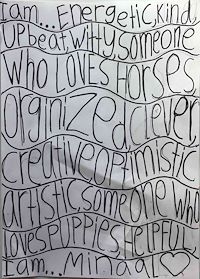 I am... Energetic, Kind,
Upbeat, Witty, Someone
Who LOVES Horses,
orginized, clever,
creative, optimistic
artistic, someone who
loves puppies, HELPFUL,
I am... Minaal ♡